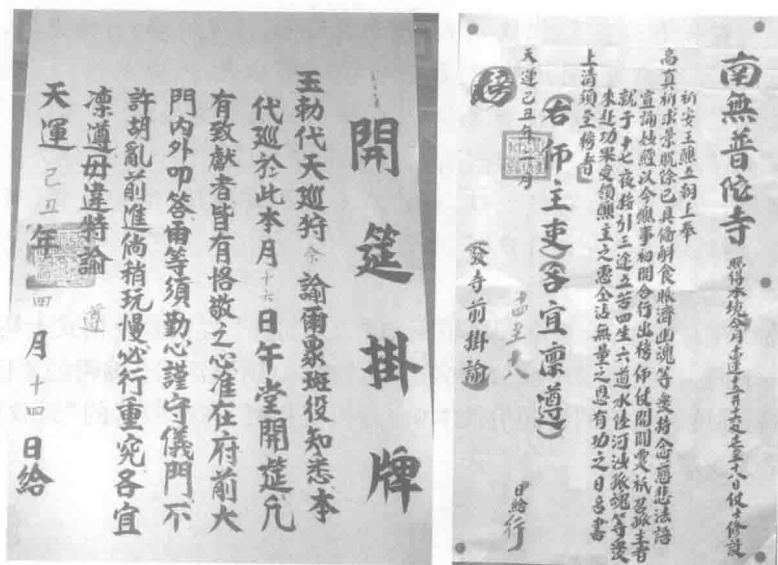 開筵掛牌
玉勅代天巡狩余諭爾眾班役知悉本
代巡於此本月十六日午堂開筵凡
有致獻者皆有恪敬之心准在府前大
門內外叩答爾等須勤心謹守儀門不
許胡亂前進倘稍玩慢必行重究各宜
凜遵毋違特諭 遵
天運己丑年四月十四日給
南無普陀寺 照得本境今月 至十八日仗士修設
祈安王醮五朝上奉
高真祈求景貺除已具備斛食賑濟幽魂等爰持念慈悲法語
宣誦妙經以今醮事初開合行出榜仰仗開聞靈祇召孤主者
就于十七夜接引三途五苦四生六道水陸河沙孤魂等爰
來赴功果受領醮主之惠全沾無量之恩有功之日名書
上清須至榜者
右師主吏各宜凜遵
天運己丑年 月 十四至十八 日給 行
榜
發寺前掛諭